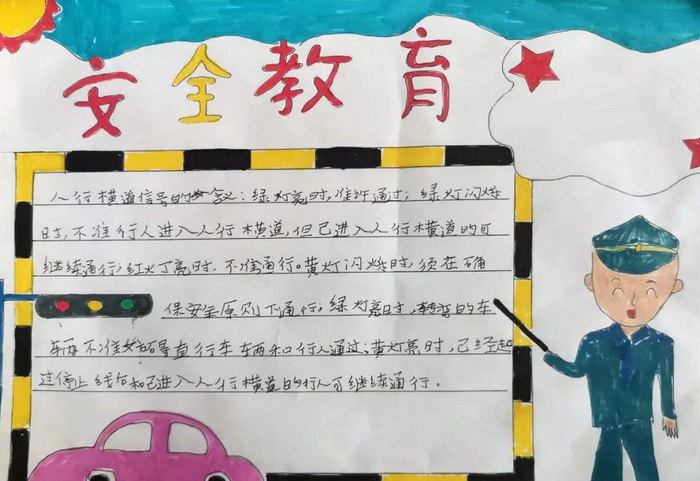 安全教育
人行横道信号的含义：绿灯亮时，准许通过；绿灯闪烁
时，不准行人进入人行横道，但已进入人行横道的可
继续通行；红灯亮时，不准通行。黄灯闪烁时，须在确
保安全原则下通行；绿灯亮时，转弯的车
辆不准妨碍直行车辆和行人通过；黄灯亮时，已经越
过停止线后和已进入人行横道的行人可继续通行。